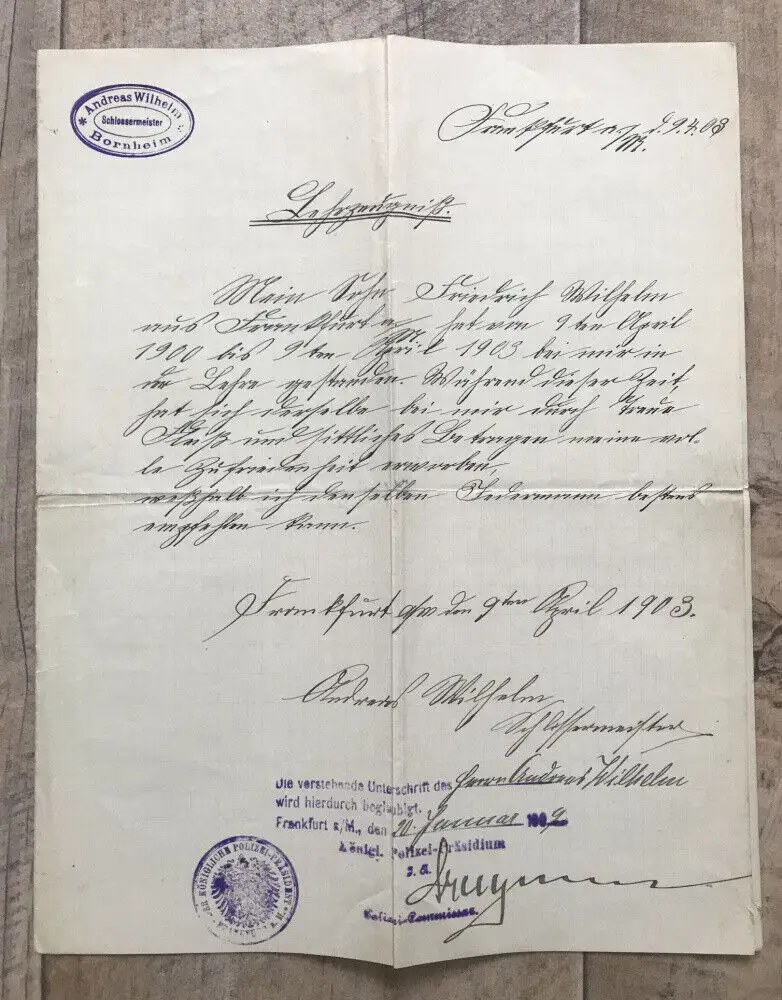 Andreas Wilhelm
Schlossermeister
* Bornheim *
Frankfurt a/M. d. 9.4.03
Lehrzeugniß.
Mein Sohn Friedrich Wilhelm
aus Frankfurt a/M. hat vom 9ten April
1900 bis 9ten April 1903 bei mir in
der Lehre gestanden. Während dieser Zeit
hat sich derselbe bei mir durch Treue
Fleiß und sittliches Betragen meine vol-
le Zufriedenheit erworben,
weßhalb ich denselben Jedermann bestens
empfehlen kann.
Frankfurt a/M den 9ten April 1903.
Andreas Wilhelm
Schlossermeister
Die verstehende Unterschrift des Herrn Andreas Wilhelm
wird hierdurch beglaubigt.
Frankfurt a/M., den 20. Januar 190
Königl. Polizei-Präsidium
J. A.
Polizei-Commissar.
DER KÖNIGLICHE POLIZEI-PRÄSIDENT
FRANKFURT A. M.